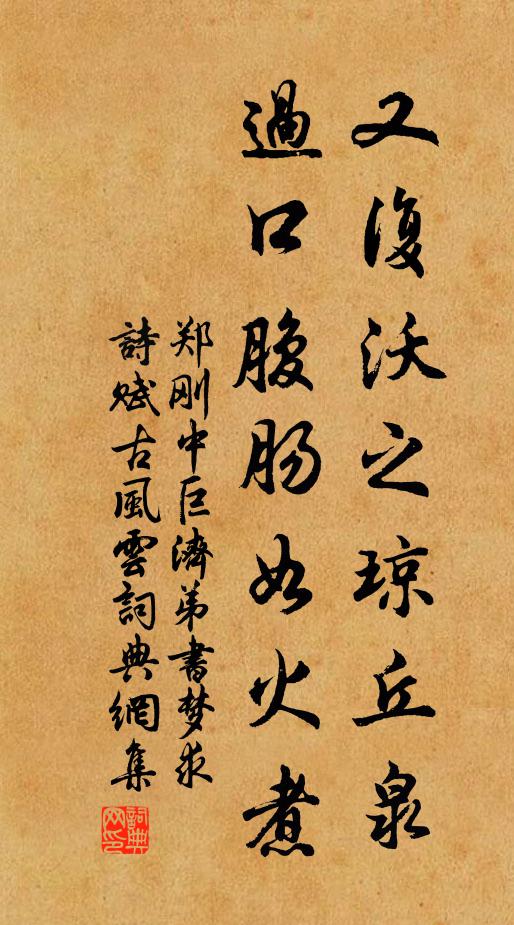 又復沃之琼丘泉
過口腹肠如火煮
郑刚中巨濟弟書梦求
詩赋古風雲詞典網集
詞典
网印